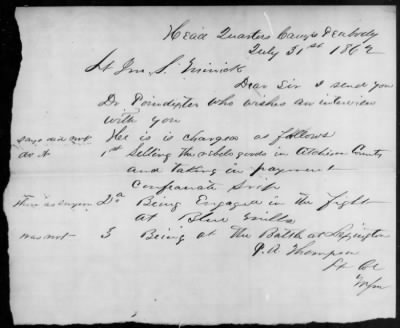 Head Quarters Camp Peabody
July 31st 1862
Lt Jno. S. Minick
Dear Sir I send you
Dr Poindexter who wishes an interview
with you
He is is charged as follows
says did not
do it
1st Selling the rebels goods in Atchison County
and taking in payment
Confederate Scrip
There as surgeon
2d Being Engaged in the fight
at Blue Mills
was not
3 Being at the Battle at Lexington
J. A. Thompson
Lt Col